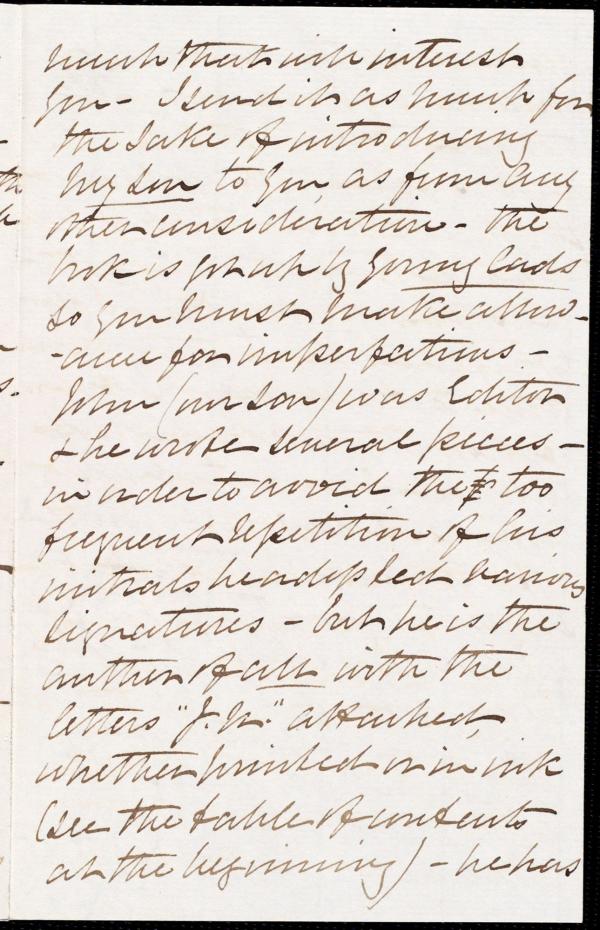 much that will interest
you - I send it as much for
the sake of introducing
my son to you as from any
other consideration - the
book is got up by young lads
so you must make allow-
-ance for imperfections -
John (our son) was Editor
& he wrote several pieces -
in order to avoid the too
frequent repetition of his
initials he adopted various
signatures - but he is the
author of all with the
letters "J. N." attached,
whether printed or in ink
(see the table of contents
at the beginning) - he has